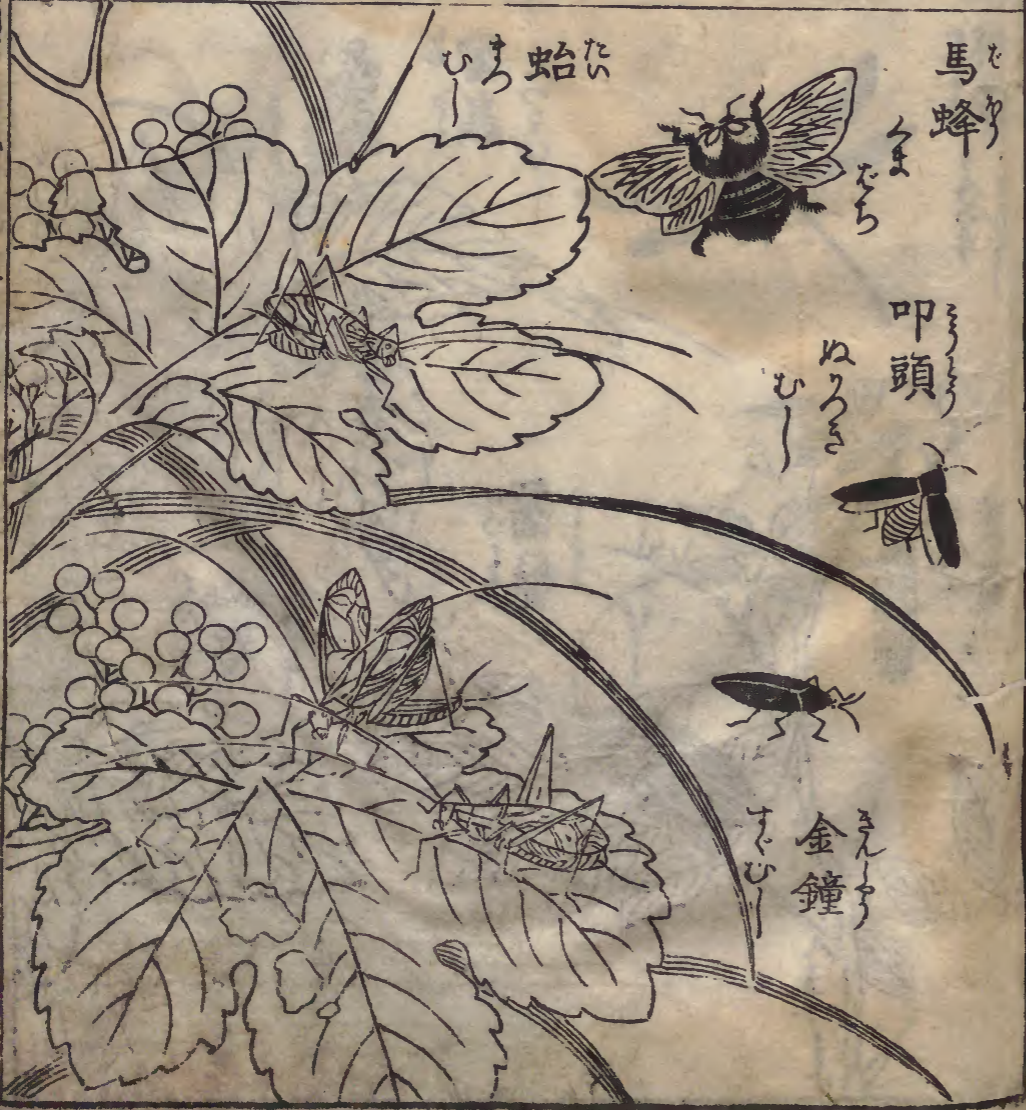 馬蜂
ばほう
くまばち
叩頭
こうとう
ぬかつき
むし
金鐘
きんしやう
すゞむし
たい
まつ
むし